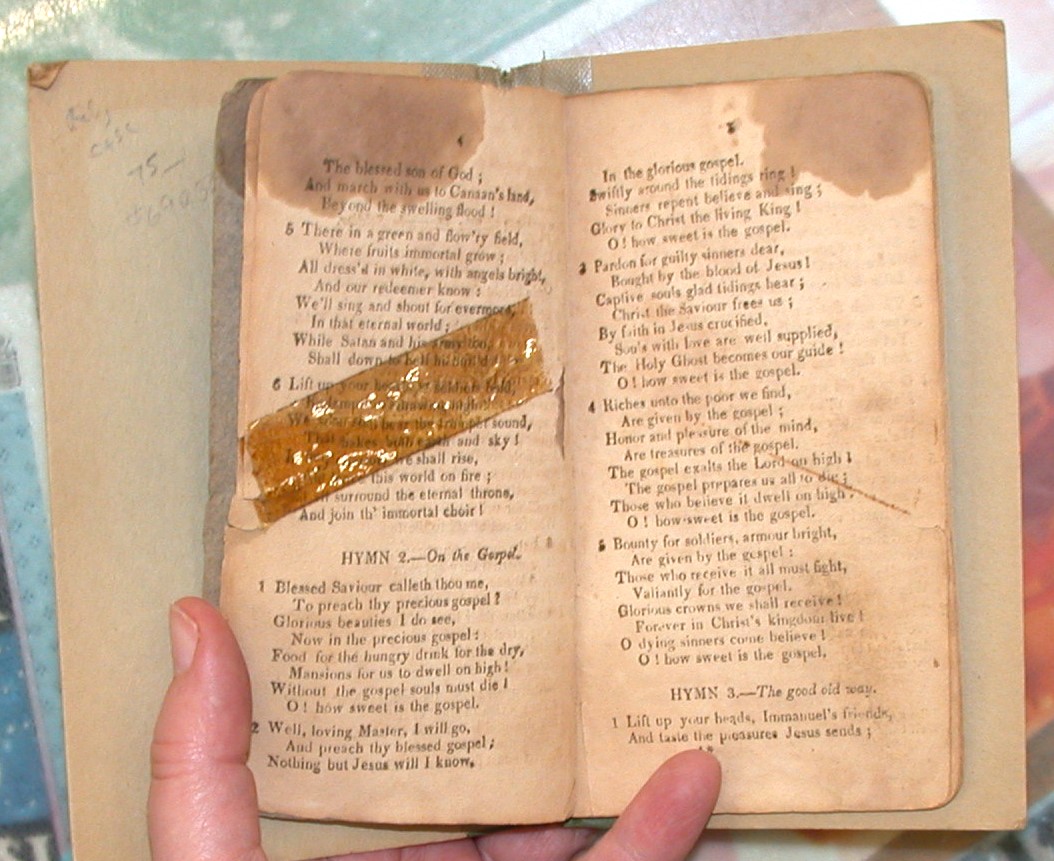 The blessed son of God ;
And march with us to Canaan's land,
Beyond the swelling flood !
5 There in a green and flow'ry field,
Where fruits immortal grow ;
All dress'd in white, with angels bright,
And our redeemer know :
We'll sing and shout for evermore,
In that eternal world ;
While Satan and his
Shall down to hell
6 Lift up your
We hear the sound,
That both earth and sky !
we shall rise,
this world on fire ;
surround the eternal throne,
And join th' immortal choir !
HYMN 2.—On the Gospel.
1 Blessed Saviour calleth thou me,
To preach thy precious gospel ?
Glorious beauties I do see,
Now in the precious gospel :
Food for the hungry drink for the dry,
Mansions for us to dwell on high !
Without the gospel souls must die !
O ! how sweet is the gospel.
2 Well, loving Master, I will go,
And preach thy blessed gospel ;
Nothing but Jesus will I know,
In the glorious gospel.
Swiftly around the tidings ring !
Sinners repent believe and sing ;
Glory to Christ the living King !
O ! how sweet is the gospel.
3 Pardon for guilty sinners dear,
Bought by the blood of Jesus !
Captive souls glad tidings hear ;
Christ the Saviour frees us ;
By faith in Jesus crucified,
Souls with love are well supplied,
The Holy Ghost becomes our guide !
O ! how sweet is the gospel.
4 Riches unto the poor we find,
Are given by the gospel ;
Honor and pleasure of the mind,
Are treasures of the gospel.
The gospel exalts the Lord on high !
The gospel prepares us all to die ;
Those who believe it dwell on high.
O ! how sweet is the gospel.
5 Bounty for soldiers, armour bright,
Are given by the gospel :
Those who receive it all must fight,
Valiantly for the gospel.
Glorious crowns we shall receive !
Forever in Christ's kingdom live !
O dying sinners come believe !
O ! how sweet is the gospel.
HYMN 3.—The good old way.
1 Lift up your heads, Immanuel's friends,
And taste the pleasures Jesus sends ;